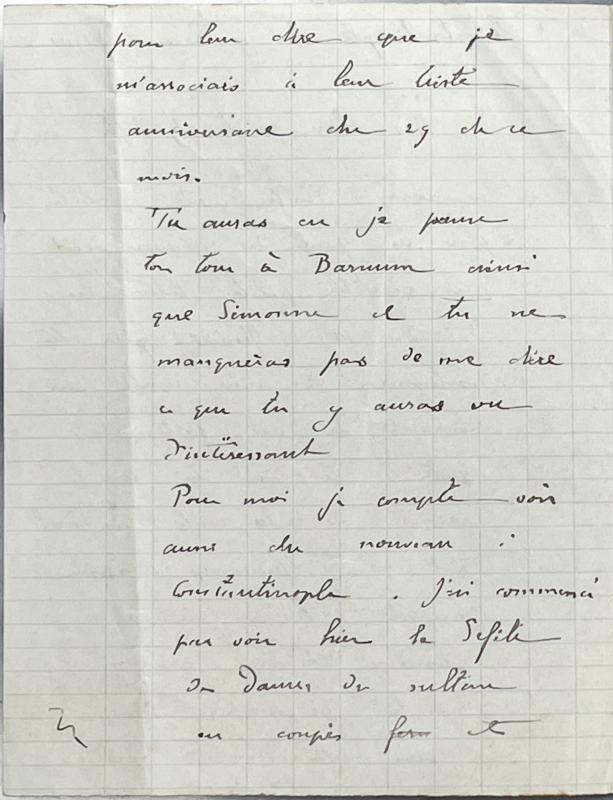 pour leur dire que je
m'associais à leur triste
anniversaire du 29 de ce
mois.
Tu auras eu je pense
ton tour à Barnum ainsi
que Simonne et tu ne
manqueras pas de me dire
ce que tu y auras vu
d'intéressant
Pour moi je compte voir
aussi du nouveau à
Constantinople. J'ai commencé
par voir hier le Défilé
des Dames du sultan
en coupés et